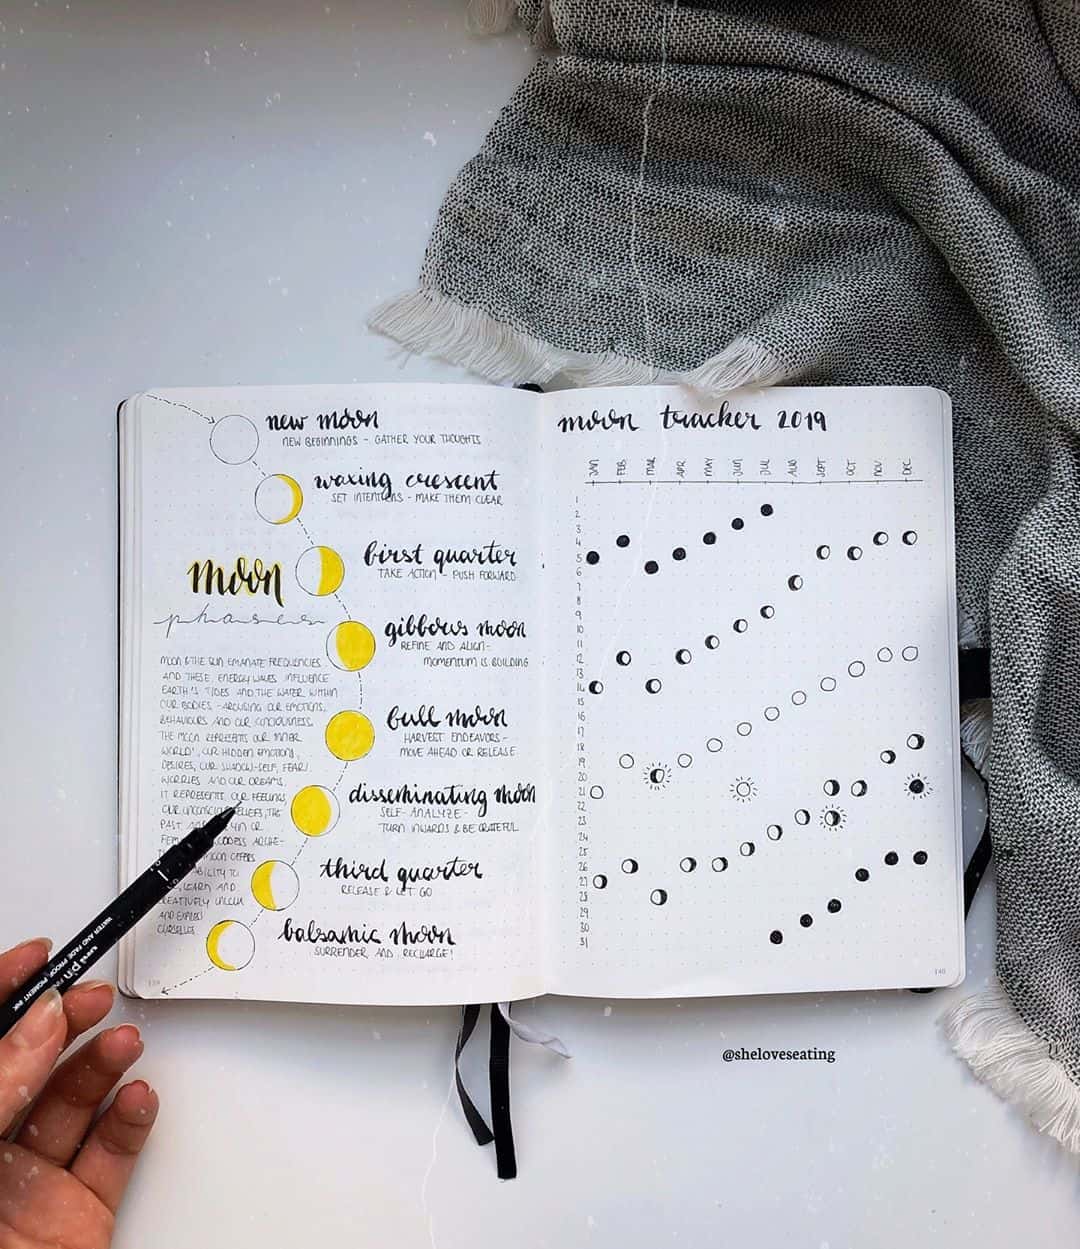 new moon
NEW BEGINNINGS - GATHER YOUR THOUGHTS
waxing crescent
SET INTENTIONS - MAKE THEM CLEAR
first quarter
TAKE ACTION - PUSH FORWARD
moon
phases
gibbous moon
REFINE AND ALIGN -
MOMENTUM IS BUILDING
full moon
HARVEST ENDEAVORS -
MOVE AHEAD OR RELEASE
disseminating moon
SELF-ANALYZE -
TURN INWARDS & BE GRATEFUL
third quarter
RELEASE & LET GO
balsamic moon
SURRENDER AND RECHARGE!
MOON & THE SUN EMANATE FREQUENCIES
AND THESE, ENERGY WAVES INFLUENCE
EARTH'S TIDES AND THE WATER WITHIN
OUR BODIES - AROUSING OUR EMOTIONS,
BEHAVIOURS AND OUR
THE MOON REPRESENTS OUR INNER
WORLD', OUR HIDDEN EMOTIONS,
DESIRES, OUR SHADOW-SELF, FEAR/
WORRIES AND OUR DREAMS.
IT REPRESENTS OUR FEELINGS,
OUR THE
PAST OR
ARCHE-
MOON OFFERS
TO
LEARN AND
AND
OURSELVES.
moon tracker 2019
JAN FEB MAR APR MAY JUN JUL AUG SEPT OCT NOV DEC
1
2
3
4
5
6
7
8
9
10
11
12
13
14
15
16
17
18
19
20
21
22
23
24
25
26
27
28
29
30
31
140
uni pin
WATER AND FADE PROOF, PIGMENT INK
@sheloveseating